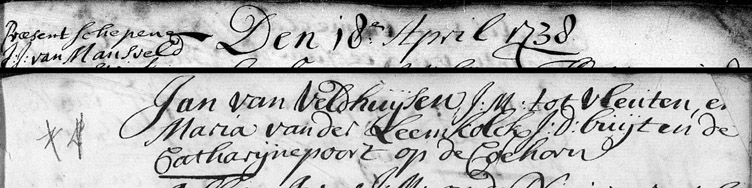 Præsent Schepene
J: J: van Mansveld
Den 18.e April 1738
Jan van Veldhuijsen J: M: tot Vleuten, en
Maria vander Leemkolck J: D: buijten de
Catharijnepoort op de Coehorn